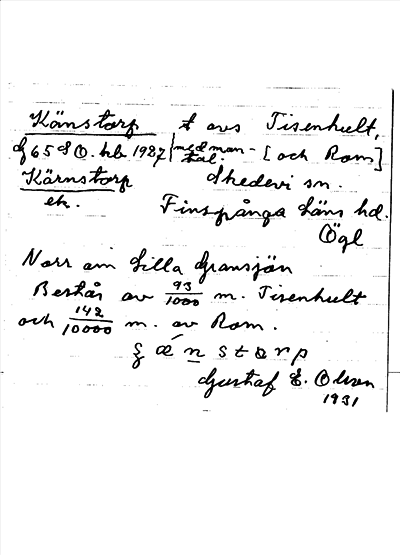 Känstorp t avs Tisenhult,
Gj 65 S Ö. hb 1927 med man-tal. [och Rom]
Kärnstorp Skedevi sn.
ek. Finspånga läns hd.
Ögl
Norr om Lilla Gransjön
Består av 93/1000 m. Tisenhult
och 142/10000 m. av Rom.
ʒ ǽ n s t o r p
Gustaf E. Olson
1931